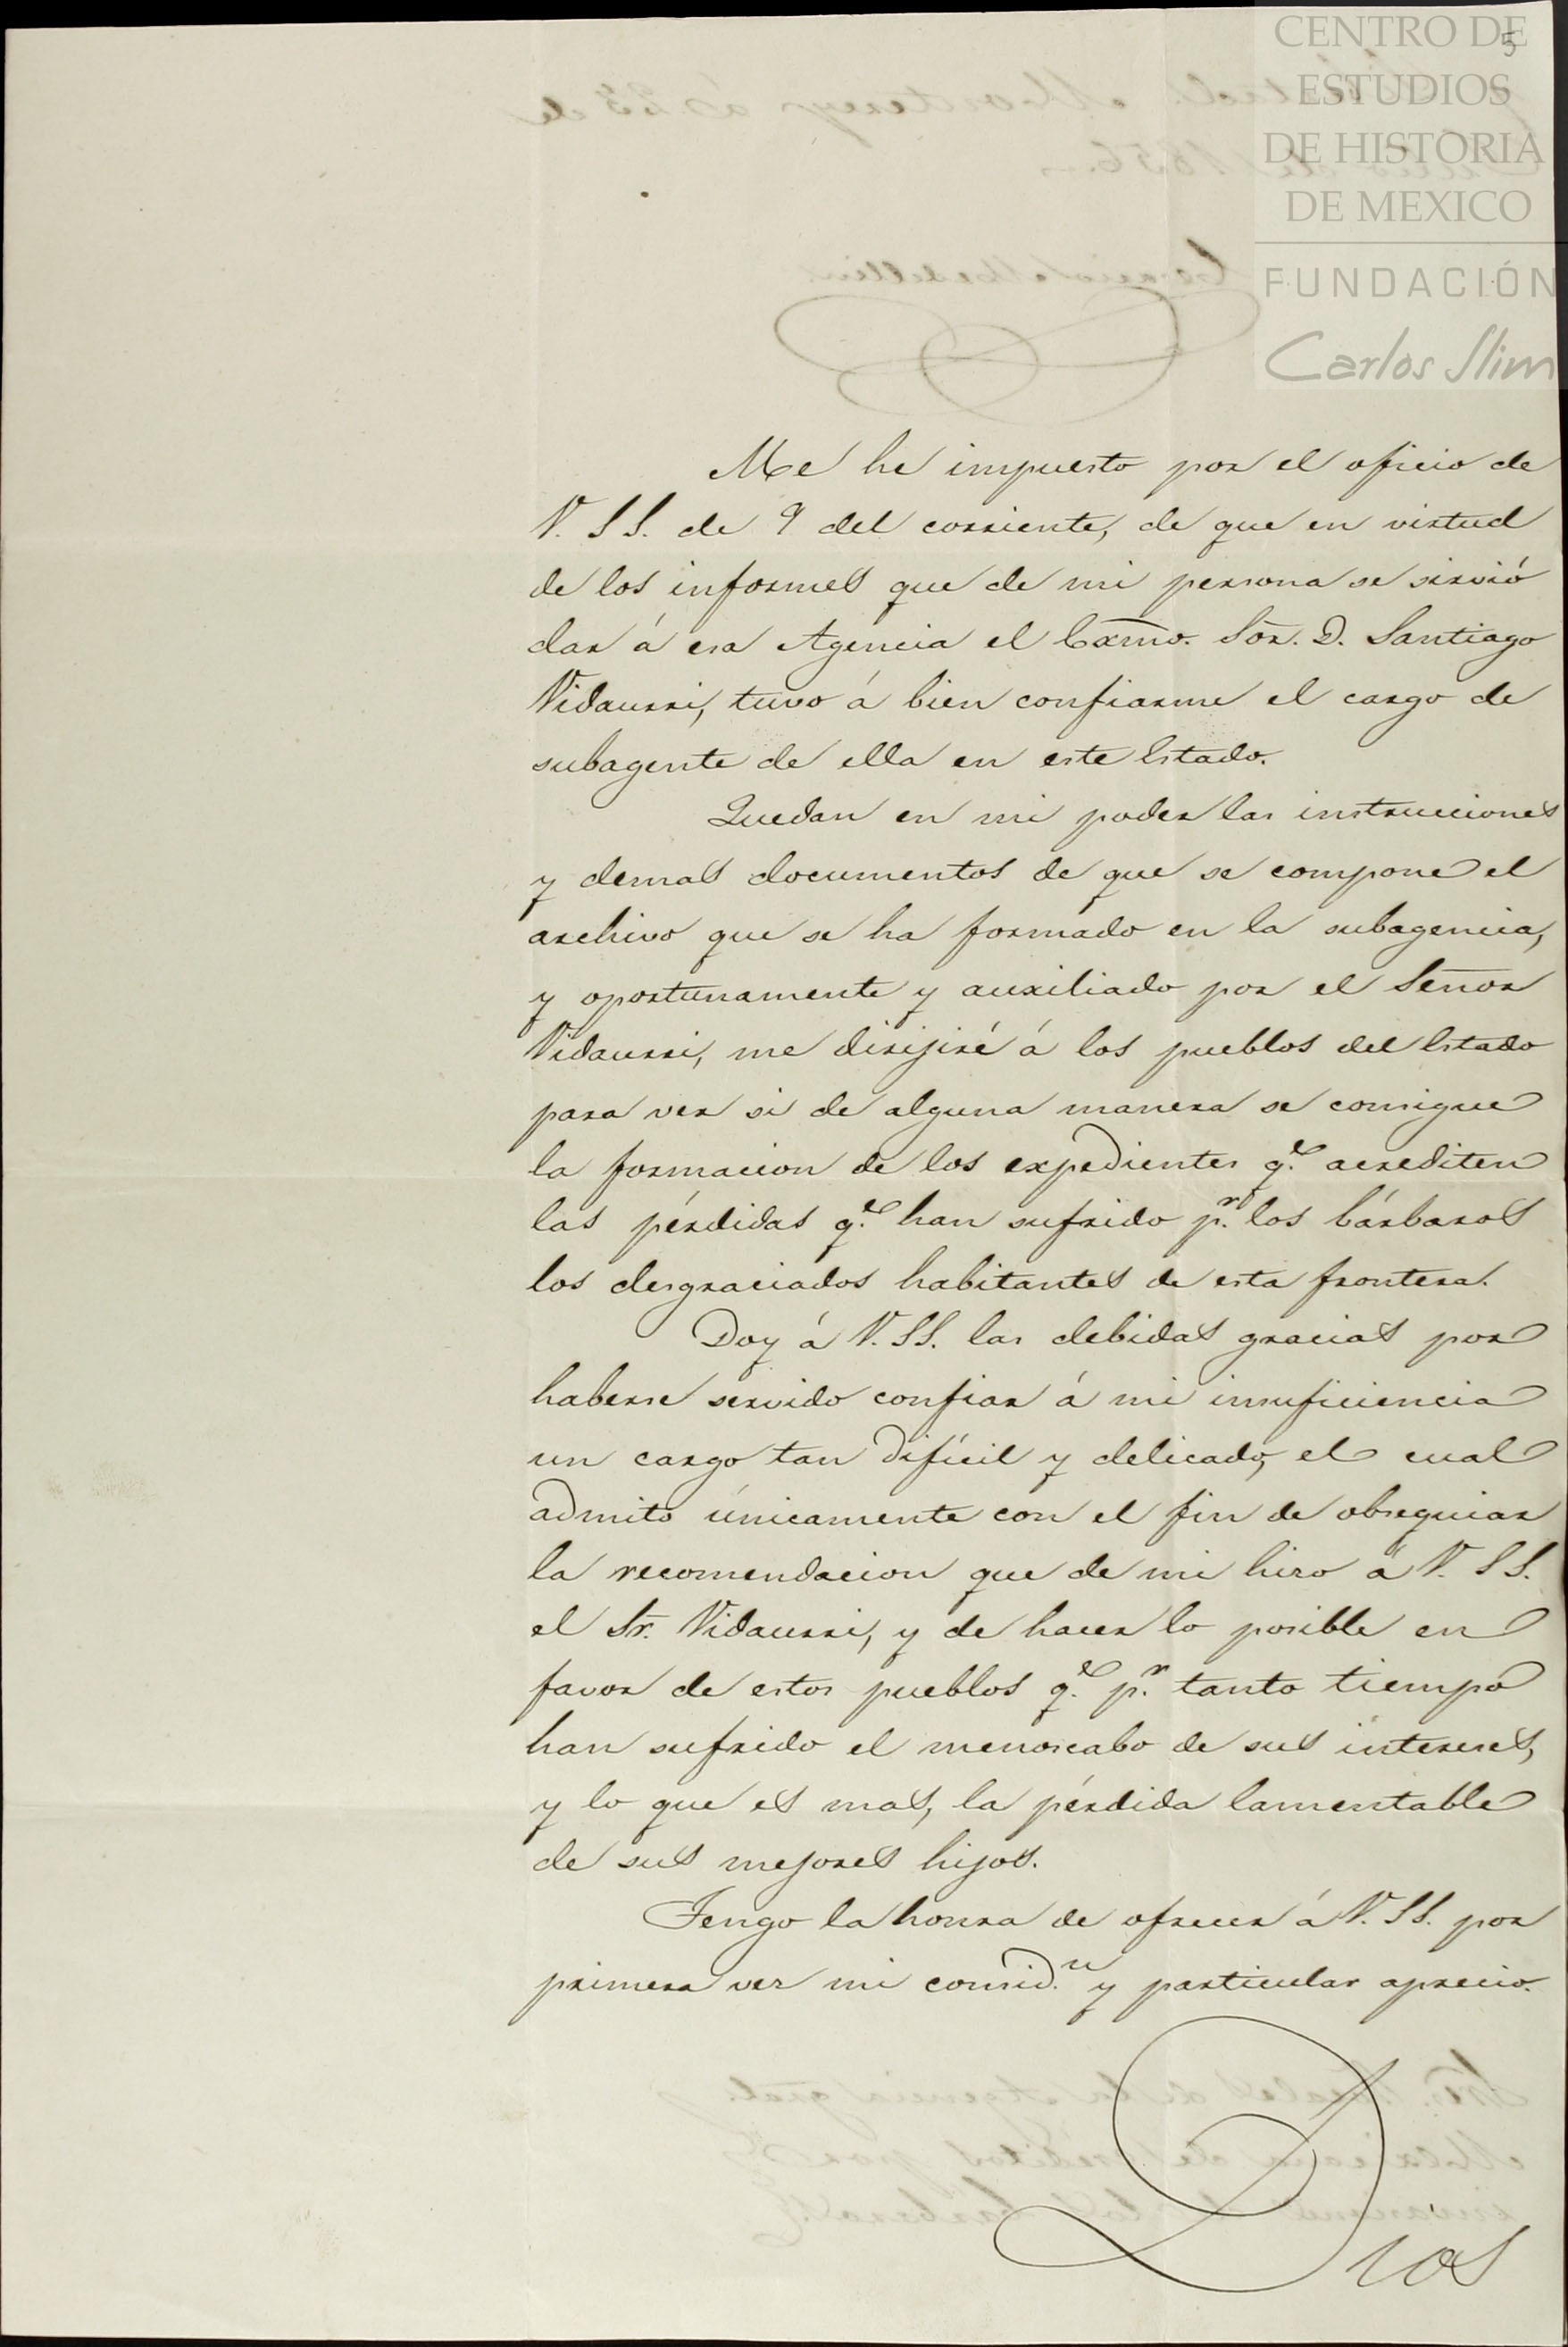 CENTRO DE
5
ESTUDIOS
DE HISTORIA
DE MEXICO
FUNDACIÓN
Carlos Slim
Me he impuesto por el oficio de
V. SS. de 9 del corriente, de que en virtud
de los informes que de mi persona se sirvió
dar á esa Agencia el Exmo. Sor. D. Santiago
Vidaurri, tuvo á bien confiarme el cargo de
subagente de ella en este Estado.
Quedan en mi poder las instrucciones
y demas documentos de que se compone el
archivo que se ha formado en la subagencia,
y oportunamente y auxiliado por el Señor
Vidaurri, me dirijiré á los pueblos del Estado
para ver si de alguna manera se consigue
la formacion de los expedientes q.e acrediten
las pérdidas q.e han sufrido p.r los bárbaros
los desgraciados habitantes de esta frontera.
Doy á V. SS. las debidas gracias por
haberse servido confiar á mi insuficiencia
un cargo tan difícil y delicado, el cual
admito únicamente con el fin de obsequiar
la recomendacion que de mi hizo á V. SS.
el Sr. Vidaurri, y de hacer lo posible en
favor de estos pueblos q.e p.r tanto tiempo
han sufrido el menoscabo de sus intereses,
y lo que es mas, la pérdida lamentable
de sus mejores hijos.
Tengo la honra de ofrecer á V. SS. por
primera vez mi consid.n y particular aprecio.
Dios